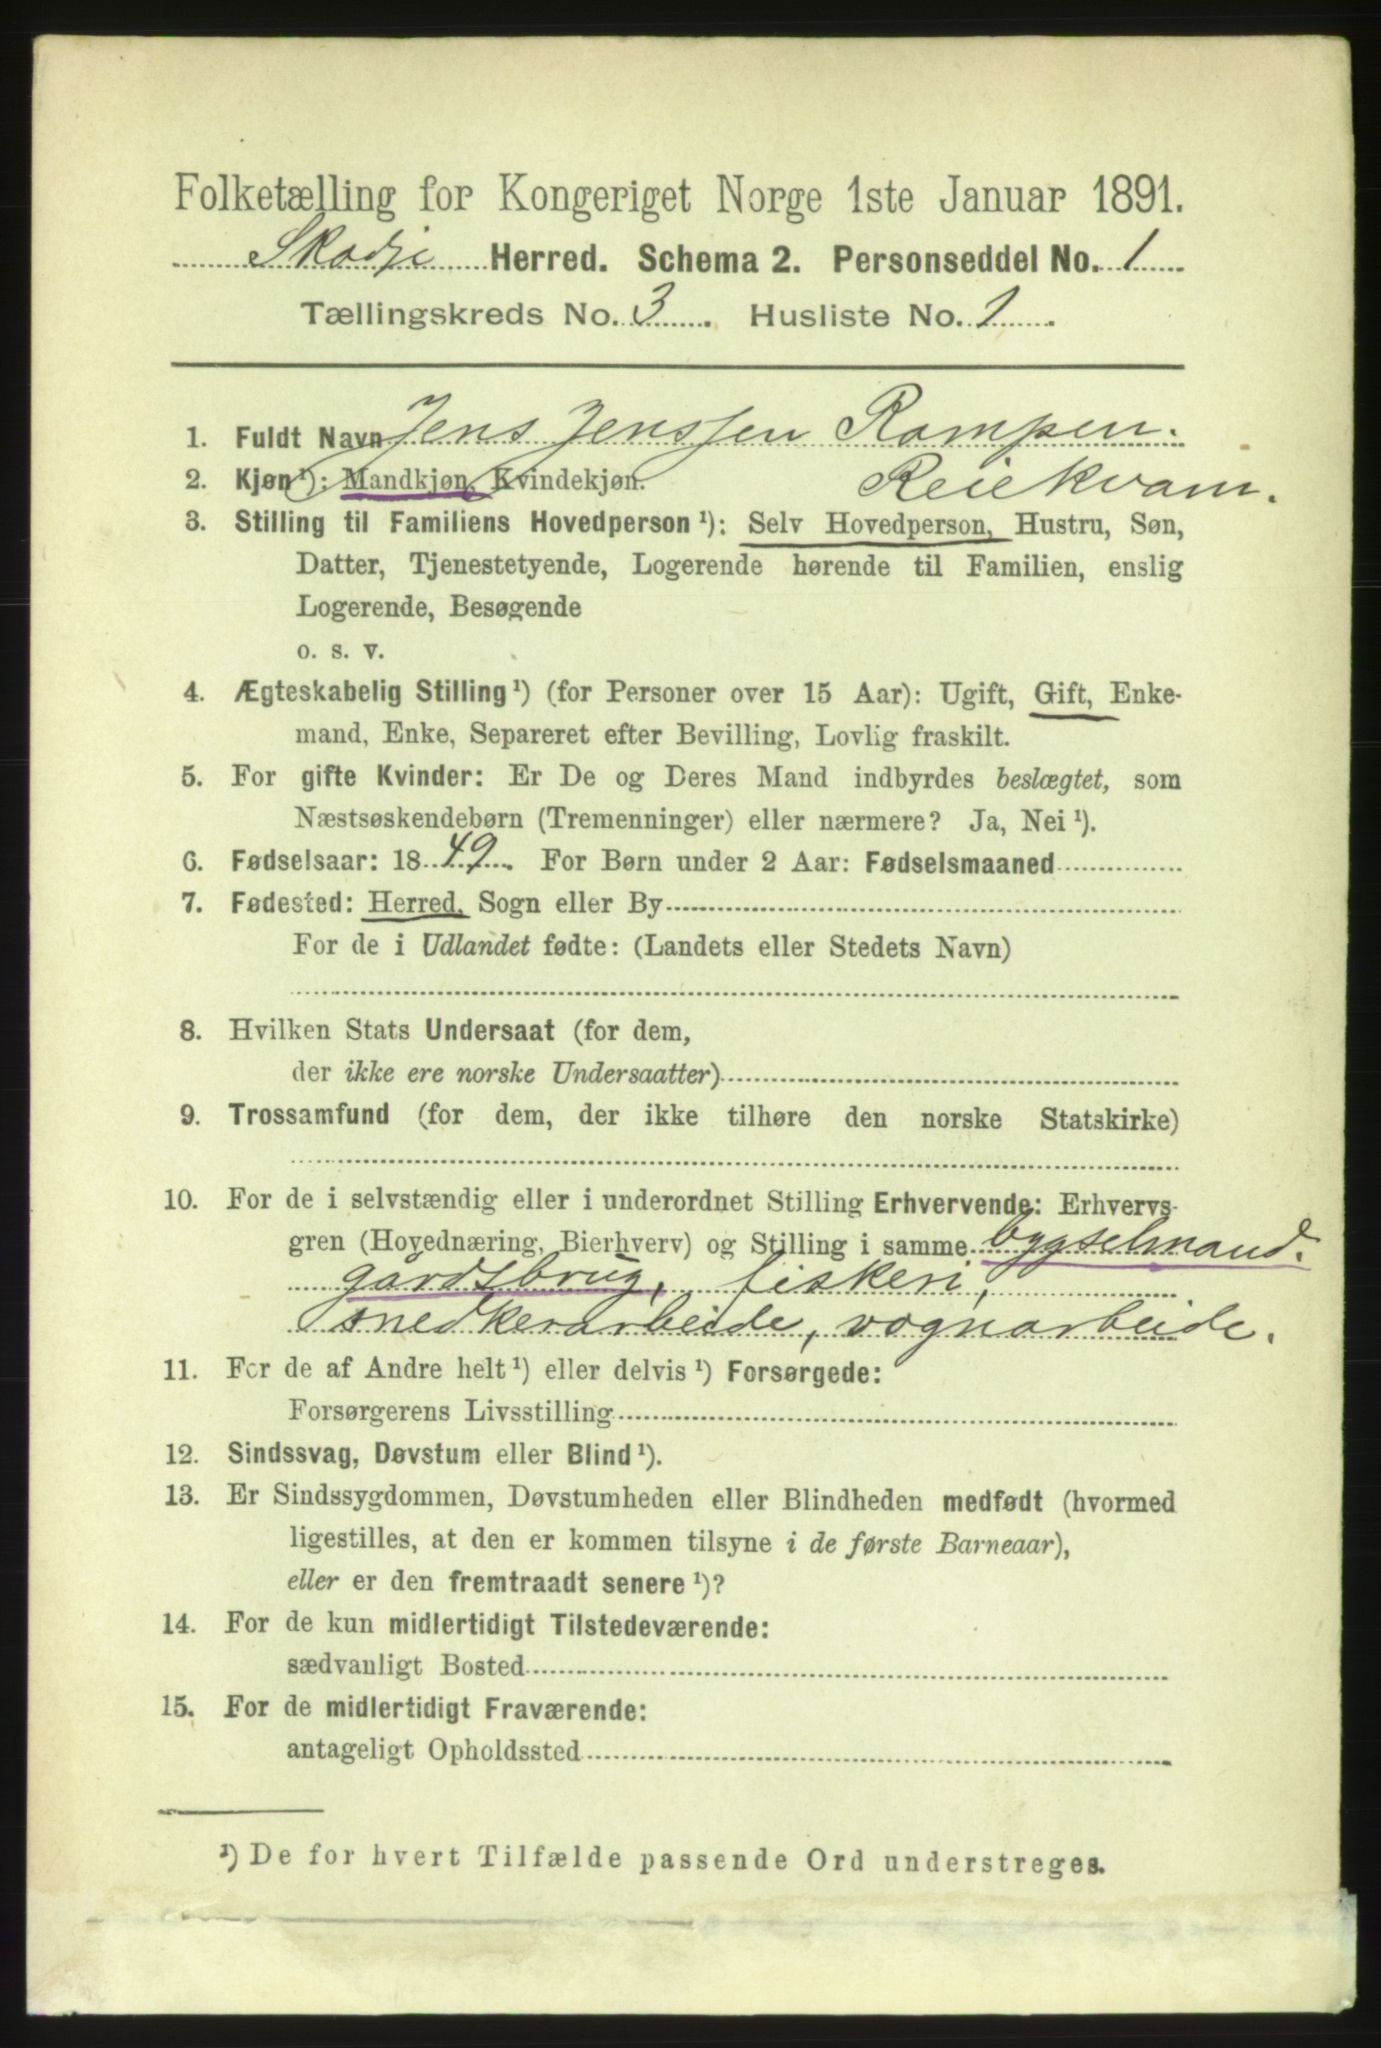 Folketælling for Kongeriget Norge 1ste Januar 1891.
Skodje Herred. Schema 2. Personseddel No. 1
Tællingskreds No. 3. Husliste No. 1.
1. Fuldt Navn Jens Jenssen Rompen.
2. Kjøn¹): Mandkjøn, Kvindekjøn. Reiekvam.
3. Stilling til Familiens Hovedperson¹): Selv Hovedperson, Hustru, Søn,
Datter, Tjenestetyende, Logerende hørende til Familien, enslig
Logerende, Besøgende
o. s. v.
4. Ægteskabelig Stilling¹) (for Personer over 15 Aar): Ugift, Gift, Enke-
mand, Enke, Separeret efter Bevilling, Lovlig fraskilt.
5. For gifte Kvinder: Er De og Deres Mand indbyrdes beslægtet, som
Næstsøskendebørn (Tremenninger) eller nærmere? Ja, Nei¹).
6. Fødselsaar: 1849. For Børn under 2 Aar: Fødselsmaaned
7. Fødested: Herred, Sogn eller By
For de i Udlandet fødte: (Landets eller Stedets Navn)
8. Hvilken Stats Undersaat (for dem,
der ikke ere norske Undersaatter)
9. Trossamfund (for dem, der ikke tilhøre den norske Statskirke)
10. For de i selvstændig eller i underordnet Stilling Erhvervende: Erhvervs-
gren (Hovednæring, Bierhverv) og Stilling i samme bygselmand.
gårdsbrug, fiskeri,
snedkerarbeide, vognarbeide.
11. For de af Andre helt¹) eller delvis¹) Forsørgede:
Forsørgerens Livsstilling
12. Sindssvag, Døvstum eller Blind¹).
13. Er Sindssygdommen, Døvstumheden eller Blindheden medfødt (hvormed
ligestilles, at den er kommen tilsyne i de første Barneaar),
eller er den fremtraadt senere¹)?
14. For de kun midlertidigt Tilstedeværende:
sædvanligt Bosted
15. For de midlertidigt Fraværende:
antageligt Opholdssted
¹) De for hvert Tilfælde passende Ord understreges.